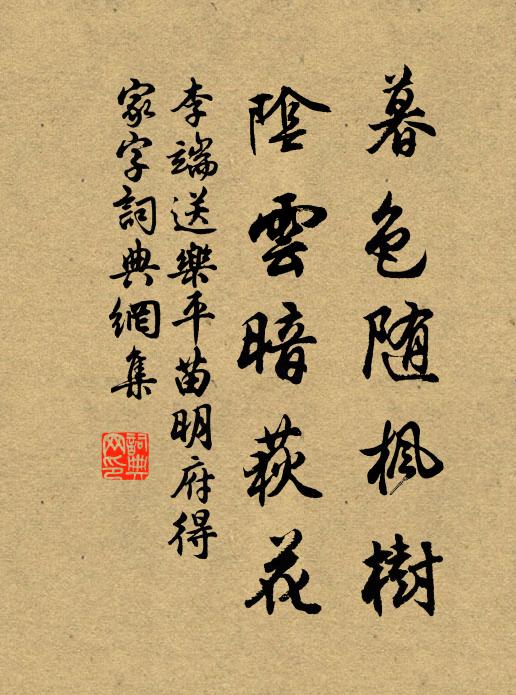 暮色随楓樹
陰雲暗荻花
李端送樂平苗明府得
家字詞典網集
詞典
网印